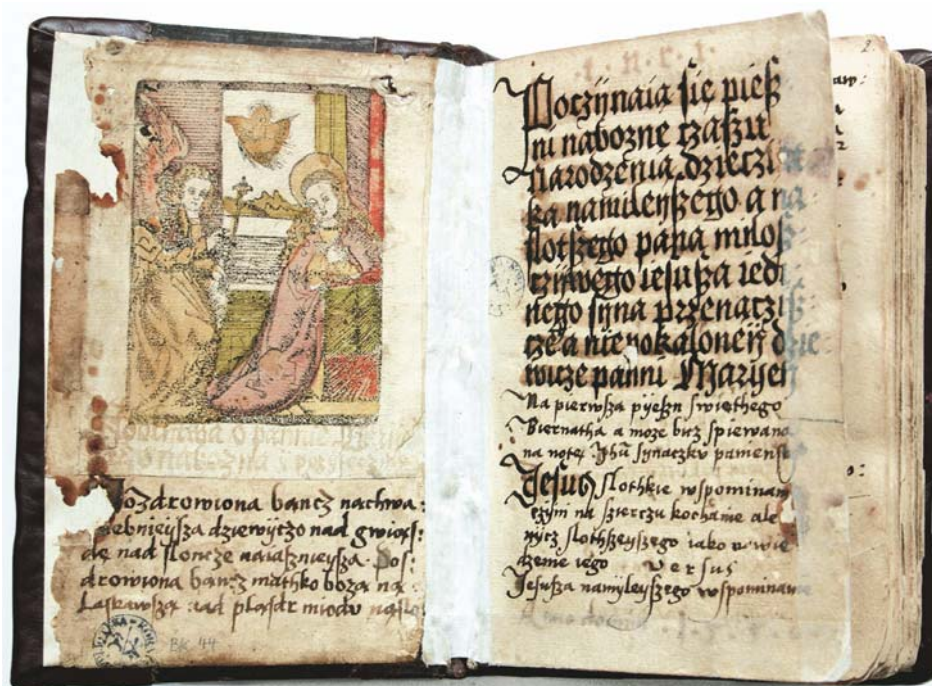 Pozdrowiona bancz nachwa:
lebnieysza dziewijczo nad gwiąs:
dę nad slonczę naiasznieysza Pos:
drowiona bancz mathko boza na
Laskawsza nad plasdr miodu naslo
BK 44
i . n . r . i .
Poczynaia się piesz
ni nabozne czaszu
narodzenia dzieczi
ka namileyszego a na
slotszego pana milos
cziwego iesusza iedi
nego syna przenaczis
cze a niepokaloneij dzie
wicze panni Maryei
Na pierwsza pijeszn swięthego
Biernatha a moze bicz spiewana
na notę Jhu synaczku paniensk
Jesus slothkie wspominam
czijm na szierczu kochanie ale
nijcz slothszeyszego iako w wie
dzeniu iego Versus
Jesusza namyleyszego wspominanie
2